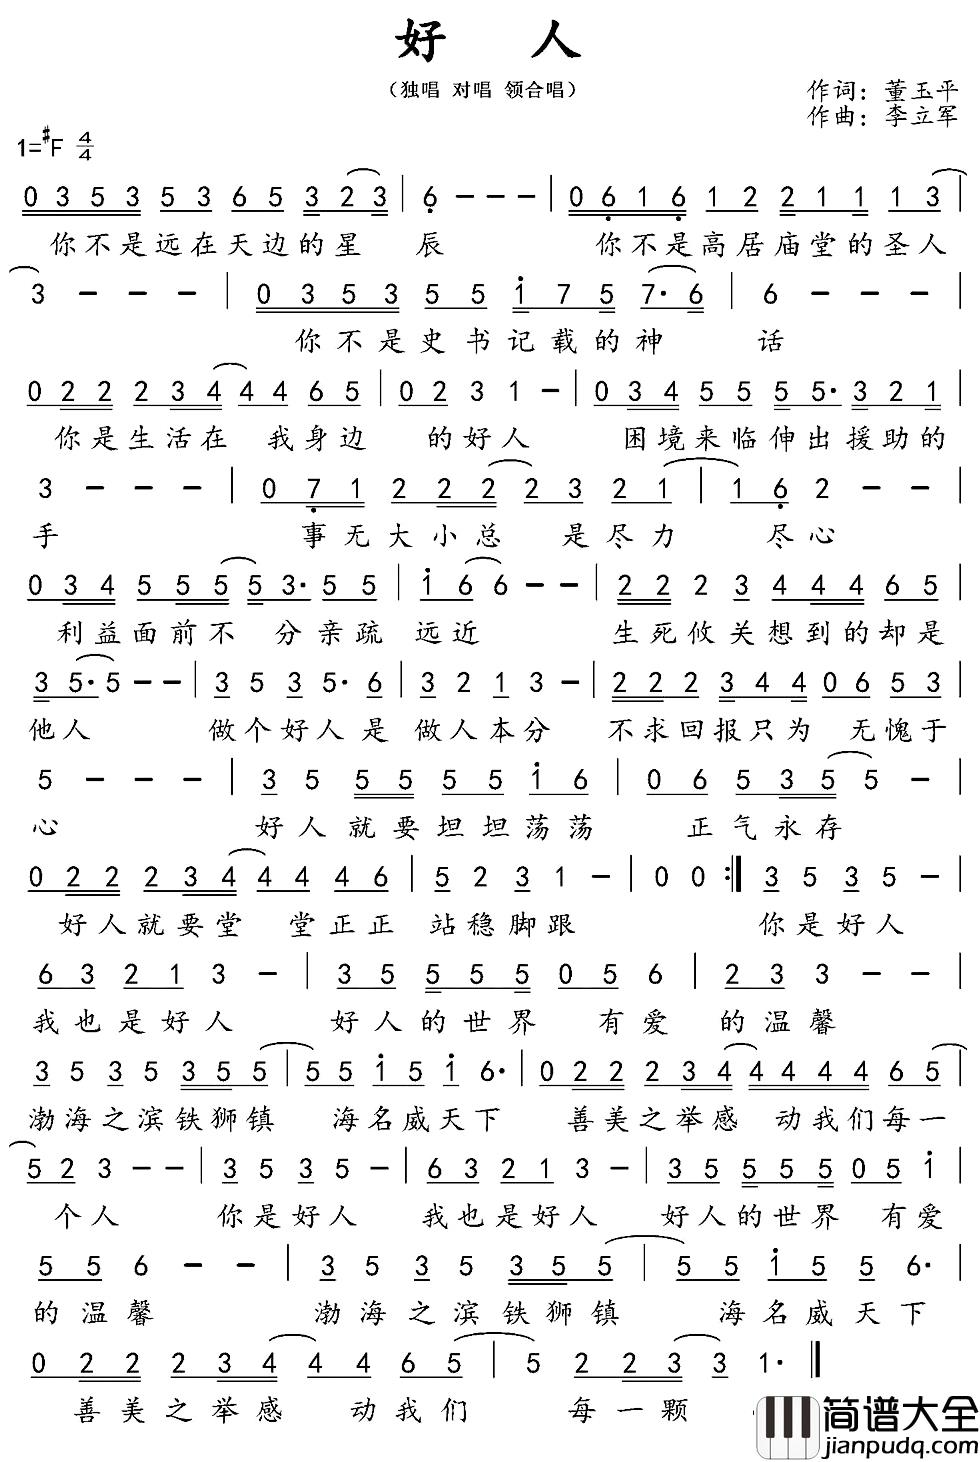 好 人
（独唱 对唱 领合唱）
作词：董玉平
作曲：李立军
1=#F 4/4
0 3 5 3 5 3 6 5 3 2 3 | 6 - - - | 0 6 1 6 1 2 2 1 1 1 3 |
你不是远在天边的星 辰 你不是高居庙堂的圣人
3 - - - | 0 3 5 3 5 5 i 7 5 7· 6 | 6 - - - |
你不是史书记载的神 话
0 2 2 2 3 4 4 4 6 5 | 0 2 3 1 - | 0 3 4 5 5 5 5· 3 2 1 |
你是生活在 我身边 的好人 困境来临伸出援助的
3 - - - | 0 7 1 2 2 2 2 3 2 1 | 1 6 2 - - |
手 事无大小总 是尽力 尽心
0 3 4 5 5 5 5 3· 5 5 | i 6 6 - - | 2 2 2 3 4 4 4 6 5 |
利益面前不 分亲疏 远近 生死攸关想到的却是
3 5· 5 - - | 3 5 3 5· 6 | 3 2 1 3 - | 2 2 2 3 4 4 0 6 5 3 |
他人 做个好人是 做人本分 不求回报只为 无愧于
5 - - - | 3 5 5 5 5 5 i 6 | 0 6 5 3 5 5 - |
心 好人就要坦坦荡荡 正气永存
0 2 2 2 3 4 4 4 4 6 | 5 2 3 1 - | 0 0 :‖ 3 5 3 5 - |
好人就要堂 堂正正 站稳脚跟 你是好人
6 3 2 1 3 - | 3 5 5 5 5 0 5 6 | 2 3 3 - - |
我也是好人 好人的世界 有爱 的温馨
3 5 3 5 3 5 5 | 5 5 i 5 i 6· | 0 2 2 2 3 4 4 4 4 6 5 |
渤海之滨铁狮镇 海名威天下 善美之举感 动我们每一
5 2 3 - - | 3 5 3 5 - | 6 3 2 1 3 - | 3 5 5 5 5 0 5 i |
个人 你是好人 我也是好人 好人的世界 有爱
5 5 6 - - | 3 5 3 5 3 5 5 | 5 5 i 5 5 6· |
的温馨 渤海之滨铁狮镇 海名威天下
0 2 2 2 3 4 4 4 6 5 | 5 2 2 3 3 1· ‖
善美之举感 动我们 每一颗
简谱大全
jianpudq.com